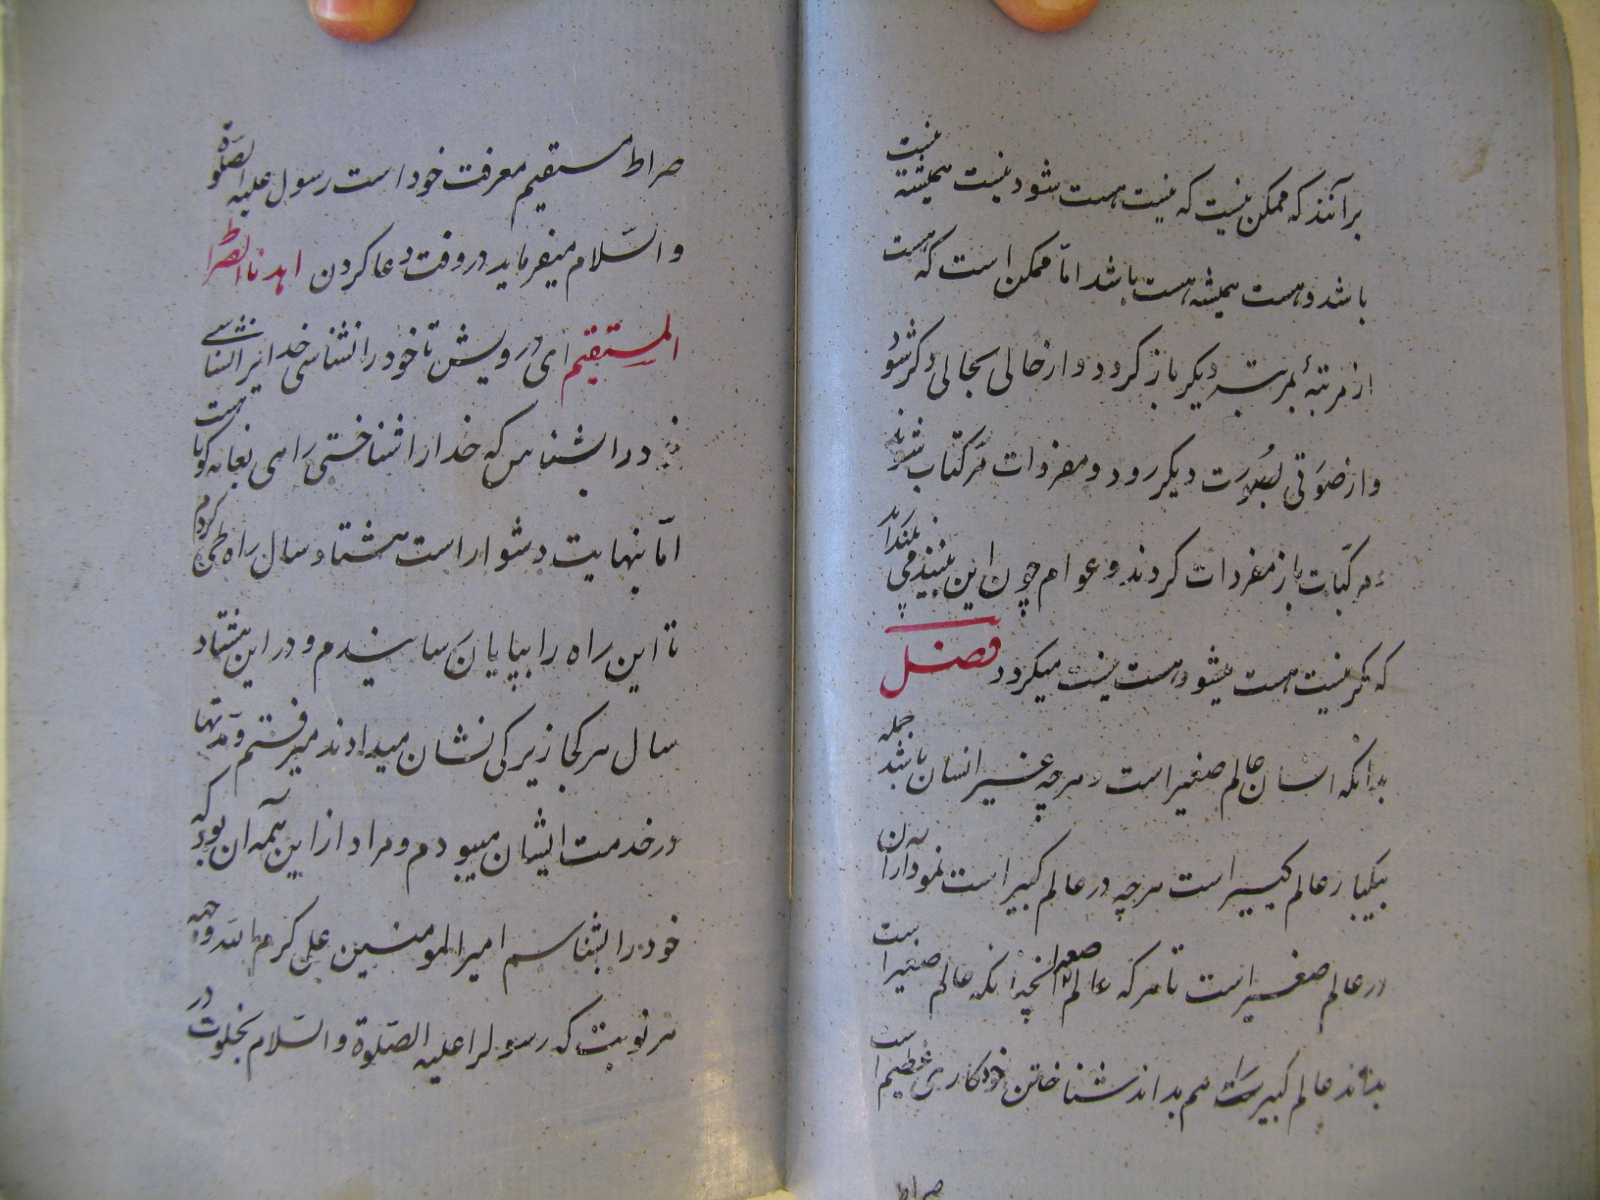 برآنند که ممکن نیست که نیست هست شود نیست همیشه نیست
باشد و هست همیشه هست باشد اما ممکن است که هست
از مرتبهٔ بمرتبه دیکر باز کردد و از حالی بحالی دکر شود
و از صورتی بصورت دیکر رود و مفردات مرکبات شوند
مرکبات باز مفردات کردند و عوام چون این بینند می پندارند
که مکر نیست هست میشود و هست نیست میکردد فصل
بدانکه انسان عالم صغیر است و هرچه غیر انسان باشد جمله
بیکبار عالم کبیر است هرچه در عالم کبیر است نمودار آن
در عالم صغیر است تا هر که عالم صغیر را چنانکه عالم صغیر است
بداند عالم کبیر را هم بداند شناختن خود کاری عظیم است
صراط
صراط مستقیم معرفت خود است رسول علیه الصلوة
و السّلام میفرماید در وقت دعا کردن اهدنا الصراط
المستقیم ای درویش تا خود را نشناسی خدایرا نشناسی
خود را بشناس که خدا را شناختی راهی بغایت کوتاه است
امّا بنهایت دشوار است هشتاد سال راه طی کردم
تا این راه را بپایان رسانیدم و در این هشتاد
سال هر کجا زیرکی نشان میدادند میرفتم و مدّتها
در خدمت ایشان میبودم و مراد از این همه آن بود که
خود را بشناسم امیر المومنین علی کرم الله وجهه
هر نوبت که رسول را علیه الصّلوة و السّلام بخلوت در